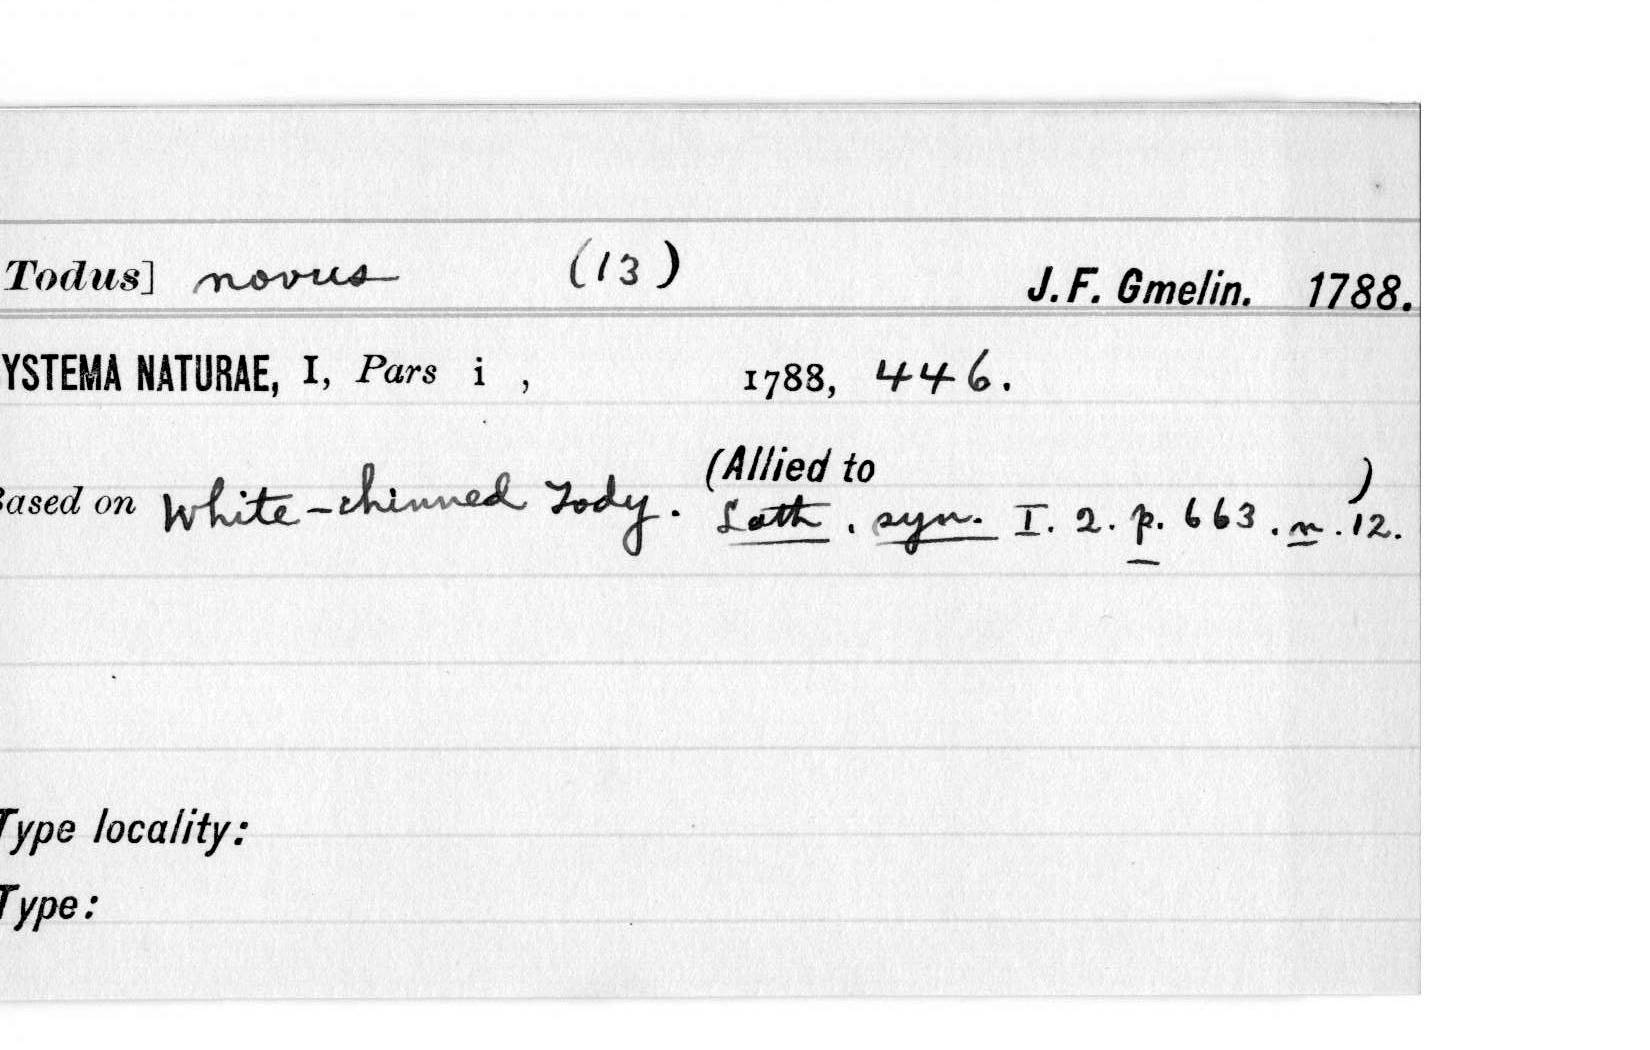 Todus] novus (13) J. F. Gmelin. 1788.
YSTEMA NATURAE, I, Pars i , 1788, 446.
(Allied to )
Based on White-chinned Tody. Lath. syn. I. 2. p. 663. n. 12.
Type locality:
Type: